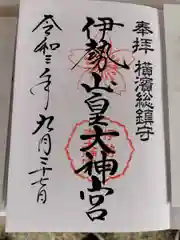 奉拝 横濱総鎮守
伊勢山皇大神宮
令和三年九月二十七日